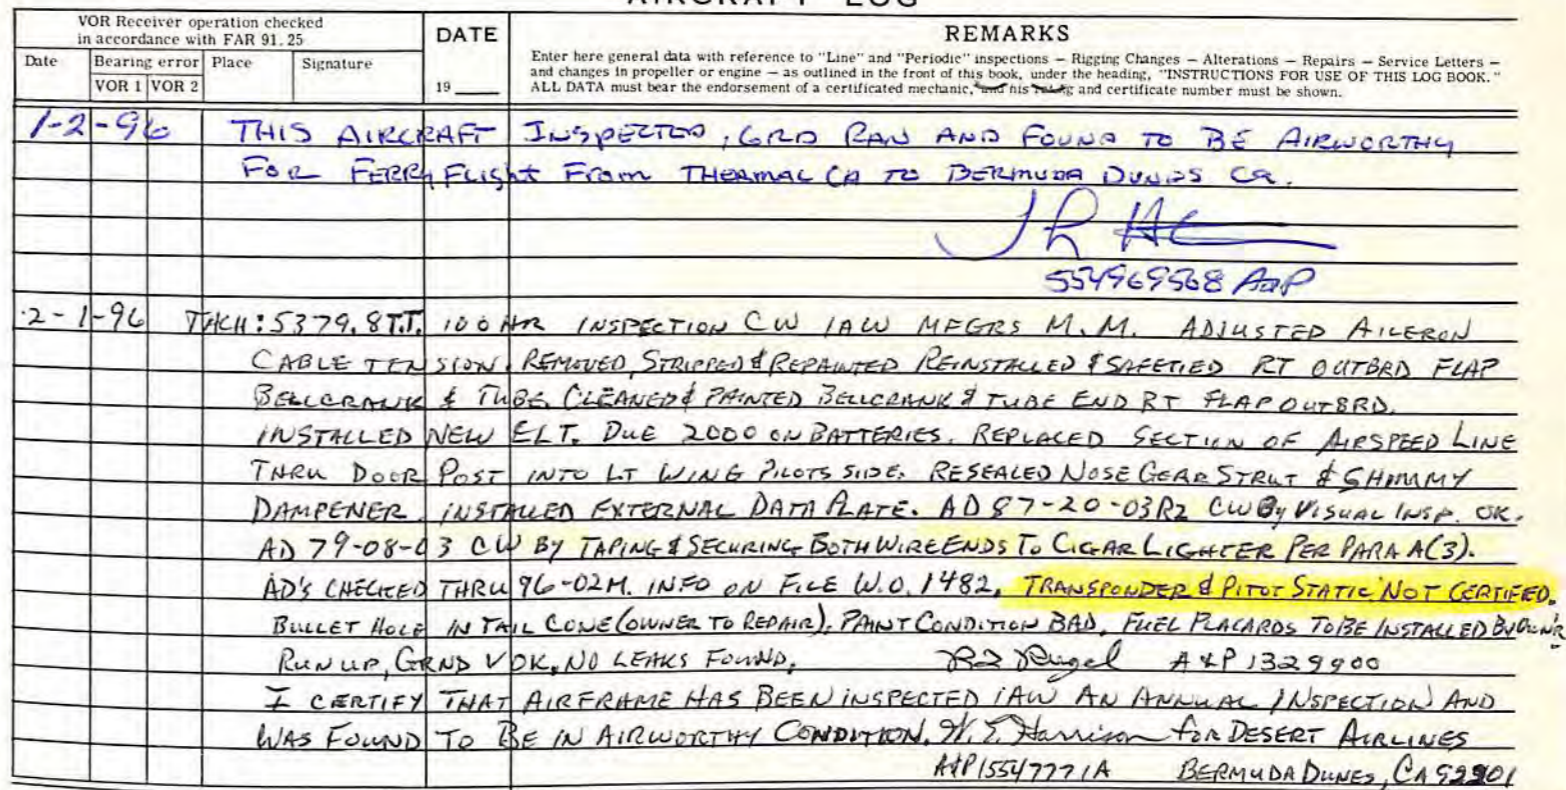 AIRCRAFT LOG
VOR Receiver operation checked
in accordance with FAR 91.25
DATE
REMARKS
Date
Bearing error
Place
Signature
VOR 1 VOR 2
19
Enter here general data with reference to "Line" and "Periodic" inspections — Rigging Changes — Alterations — Repairs — Service Letters —
and changes in propeller or engine — as outlined in the front of this book, under the heading, "INSTRUCTIONS FOR USE OF THIS LOG BOOK."
ALL DATA must bear the endorsement of a certificated mechanic, and his rating and certificate number must be shown.
1-2-96 THIS AIRCRAFT INSPECTED, GRD RAN AND FOUND TO BE AIRWORTHY
FOR FERRY FLIGHT FROM THERMAL CA TO BERMUDA DUNES CA.
554969568 A&P
2-1-96 TACH: 5379.8 T.T. 100 HR INSPECTION CW IAW MFGRS M.M. ADJUSTED AILERON
CABLE TENSION. REMOVED, STRIPPED & REPAINTED REINSTALLED & SAFETIED RT OUTBRD FLAP
BELLCRANK & TUBE. CLEANED & PAINTED BELLCRANK & TUBE END RT FLAP OUTBRD.
INSTALLED NEW ELT. DUE 2000 ON BATTERIES. REPLACED SECTION OF AIRSPEED LINE
THRU DOOR POST INTO LT WING PILOTS SIDE. RESEALED NOSE GEAR STRUT & SHIMMY
DAMPENER. INSTALLED EXTERNAL DATA PLATE. AD 87-20-03R2 CW By VISUAL INSP. OK.
AD 79-08-03 CW BY TAPING & SECURING BOTH WIRE ENDS TO CIGAR LIGHTER PER PARA A(3).
AD'S CHECKED THRU 96-02M. INFO ON FILE W.O. 1482, TRANSPONDER & PITOT STATIC NOT CERTIFIED.
BULLET HOLE IN TAIL CONE (OWNER TO REPAIR), PAINT CONDITION BAD, FUEL PLACARDS TO BE INSTALLED BY OWNR
RUN UP, GRND V OK, NO LEAKS FOUND. A&P 1329900
I CERTIFY THAT AIRFRAME HAS BEEN INSPECTED IAW AN ANNUAL INSPECTION AND
WAS FOUND TO BE IN AIRWORTHY CONDITION. W. E. Harrison for DESERT AIRLINES
A&P 15547771A BERMUDA DUNES, CA 92201